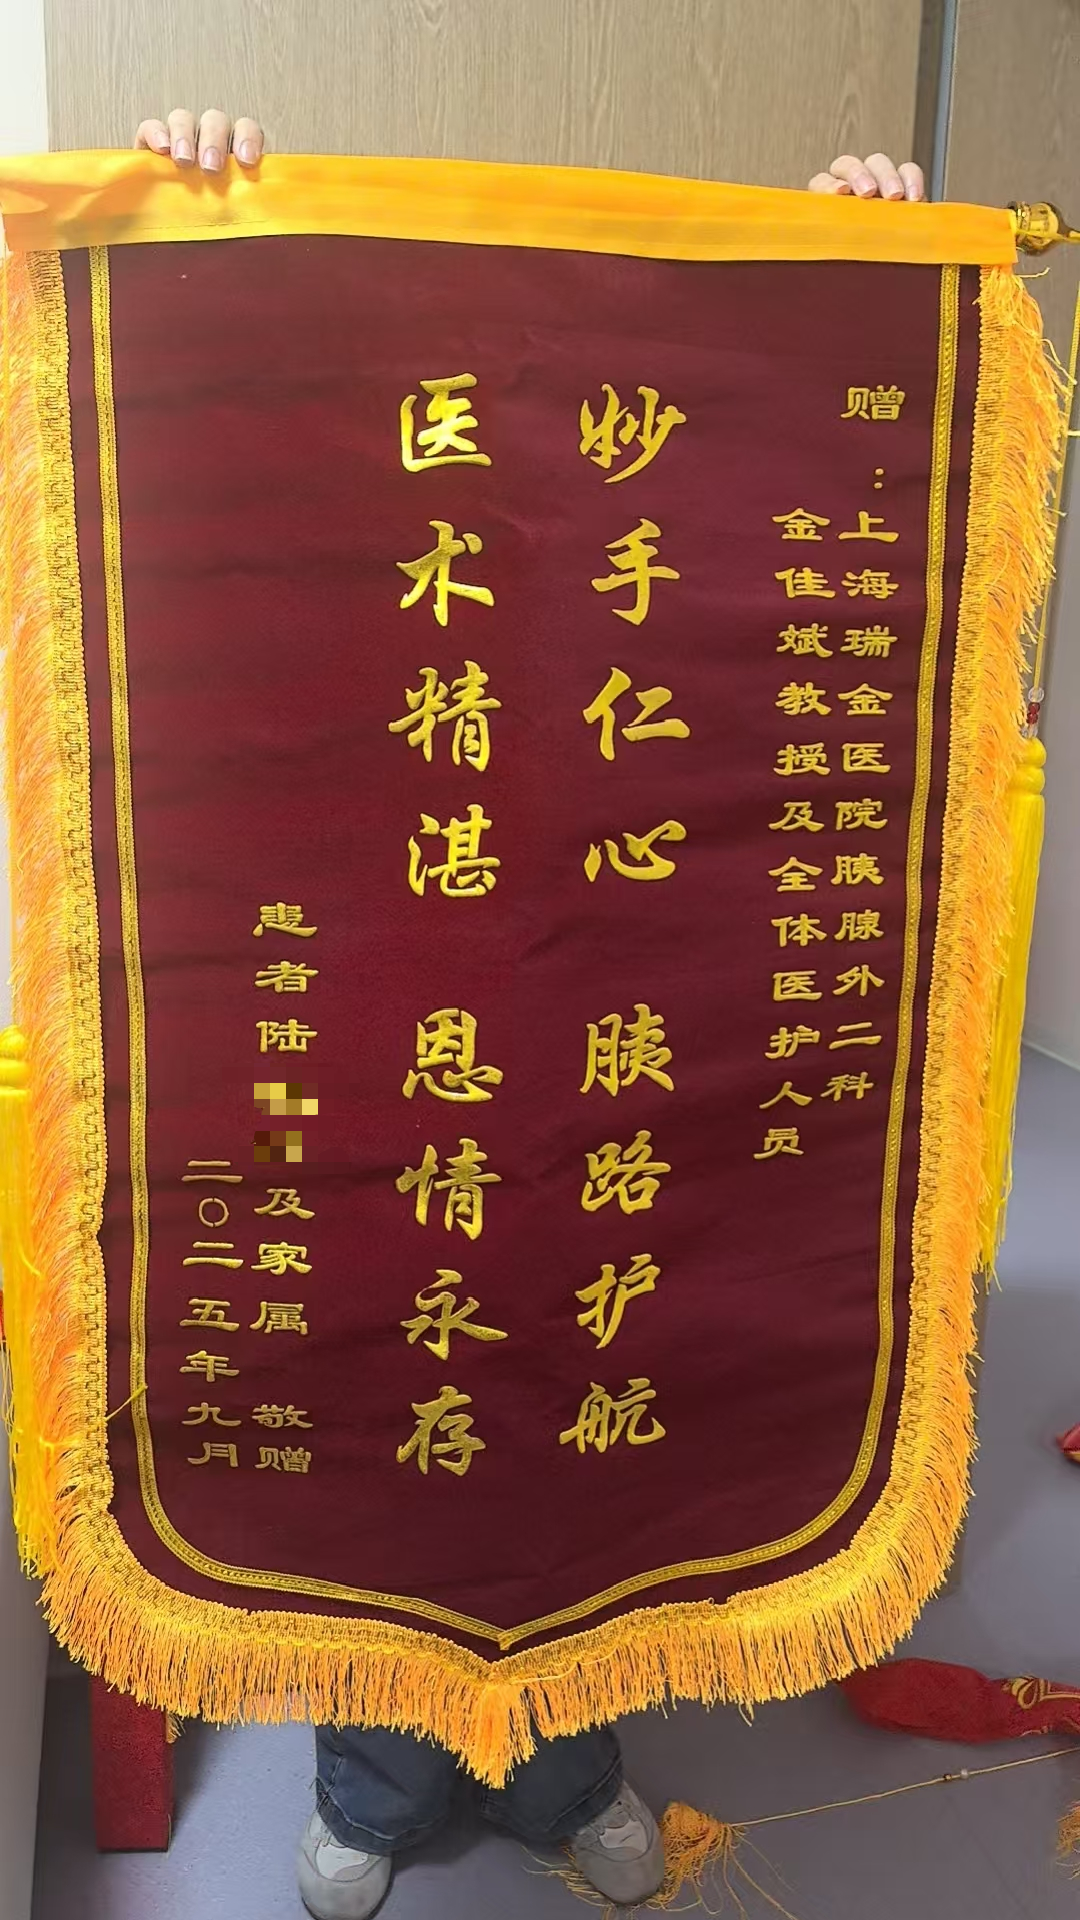 赠：上海瑞金医院胰腺外二科
金佳斌教授及全体医护人员
妙手仁心 胰路护航
医术精湛 恩情永存
患者陆
及家属 敬赠
二〇二五年九月